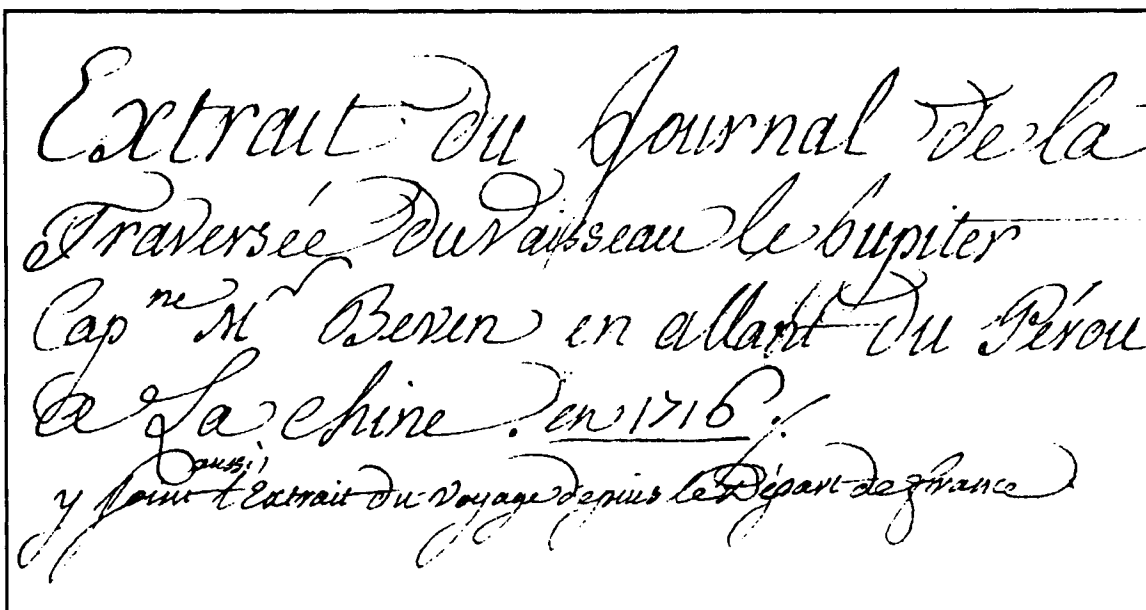 Extrait du Journal de la
Traversée du Vaisseau le Jupiter
Cap.ne Mr Beven en allant du Pérou
a La Chine. en 1716.
aussi
y Joint l'Extrait du voyage depuis le Départ de france